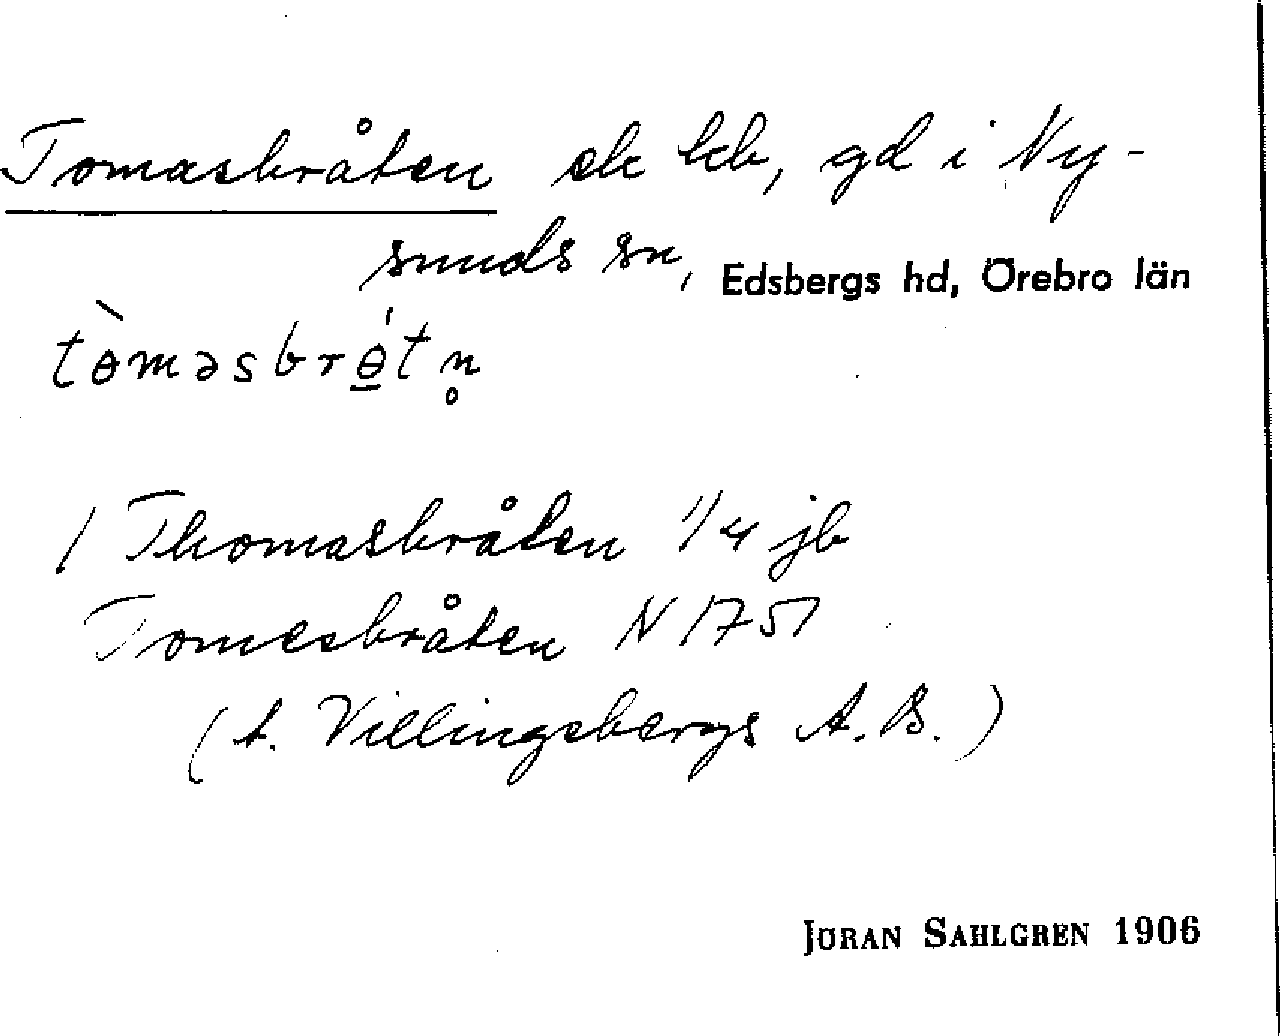 Tomasbråten ek lcb, gd i Ny-
sunds sn, Edsbergs hd, Örebro län
tɵ̀məsbrɵ̲́tn̥
/ Thomasbråten 1/4 jb
Tomesbråten N 1751
(t. Villingsbergs A.B.)
JÖRAN SAHLGREN 1906